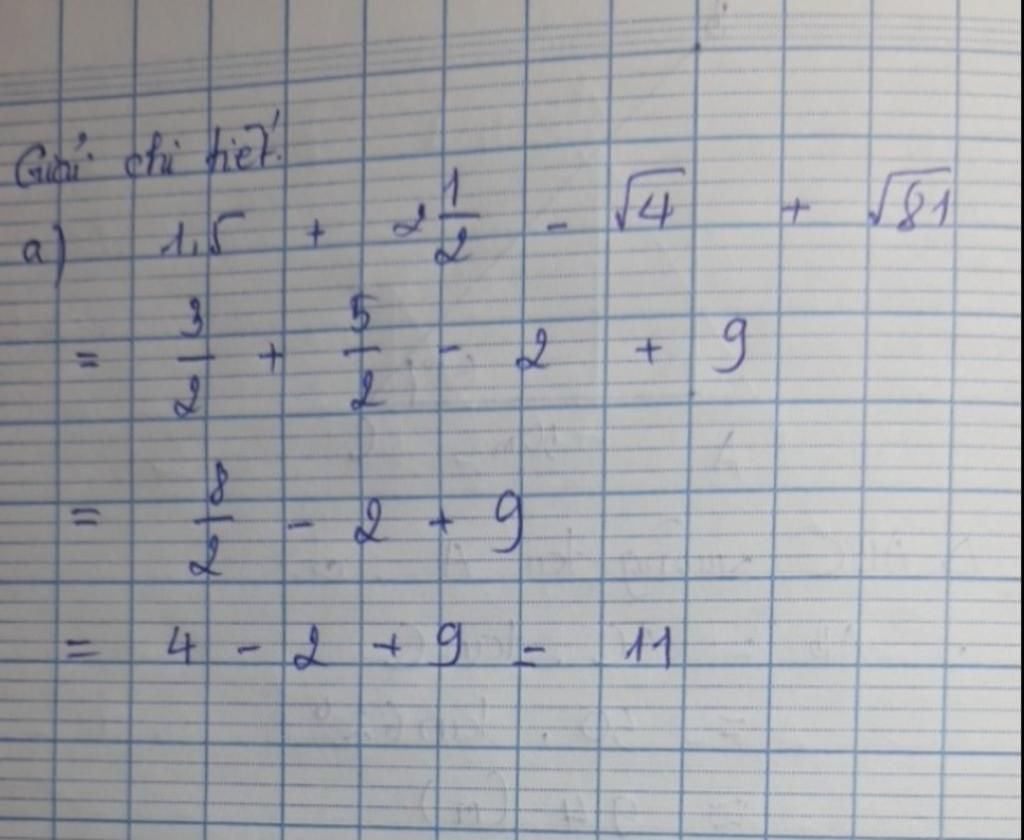 Giải chi tiết!
a) 1,5 + 2 1/2 - √4 + √81
= 3/2 + 5/2 - 2 + 9
= 8/2 - 2 + 9
= 4 - 2 + 9 = 11